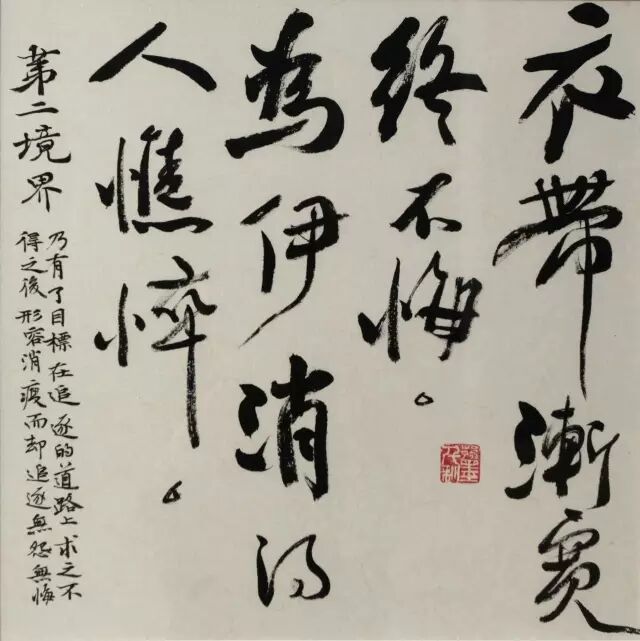 衣帶漸寬
終不悔。
為伊消得
人憔悴。
第二境界
乃有了目標在追逐的道路上求之不
得之後形容消瘦而却追逐無怨無悔